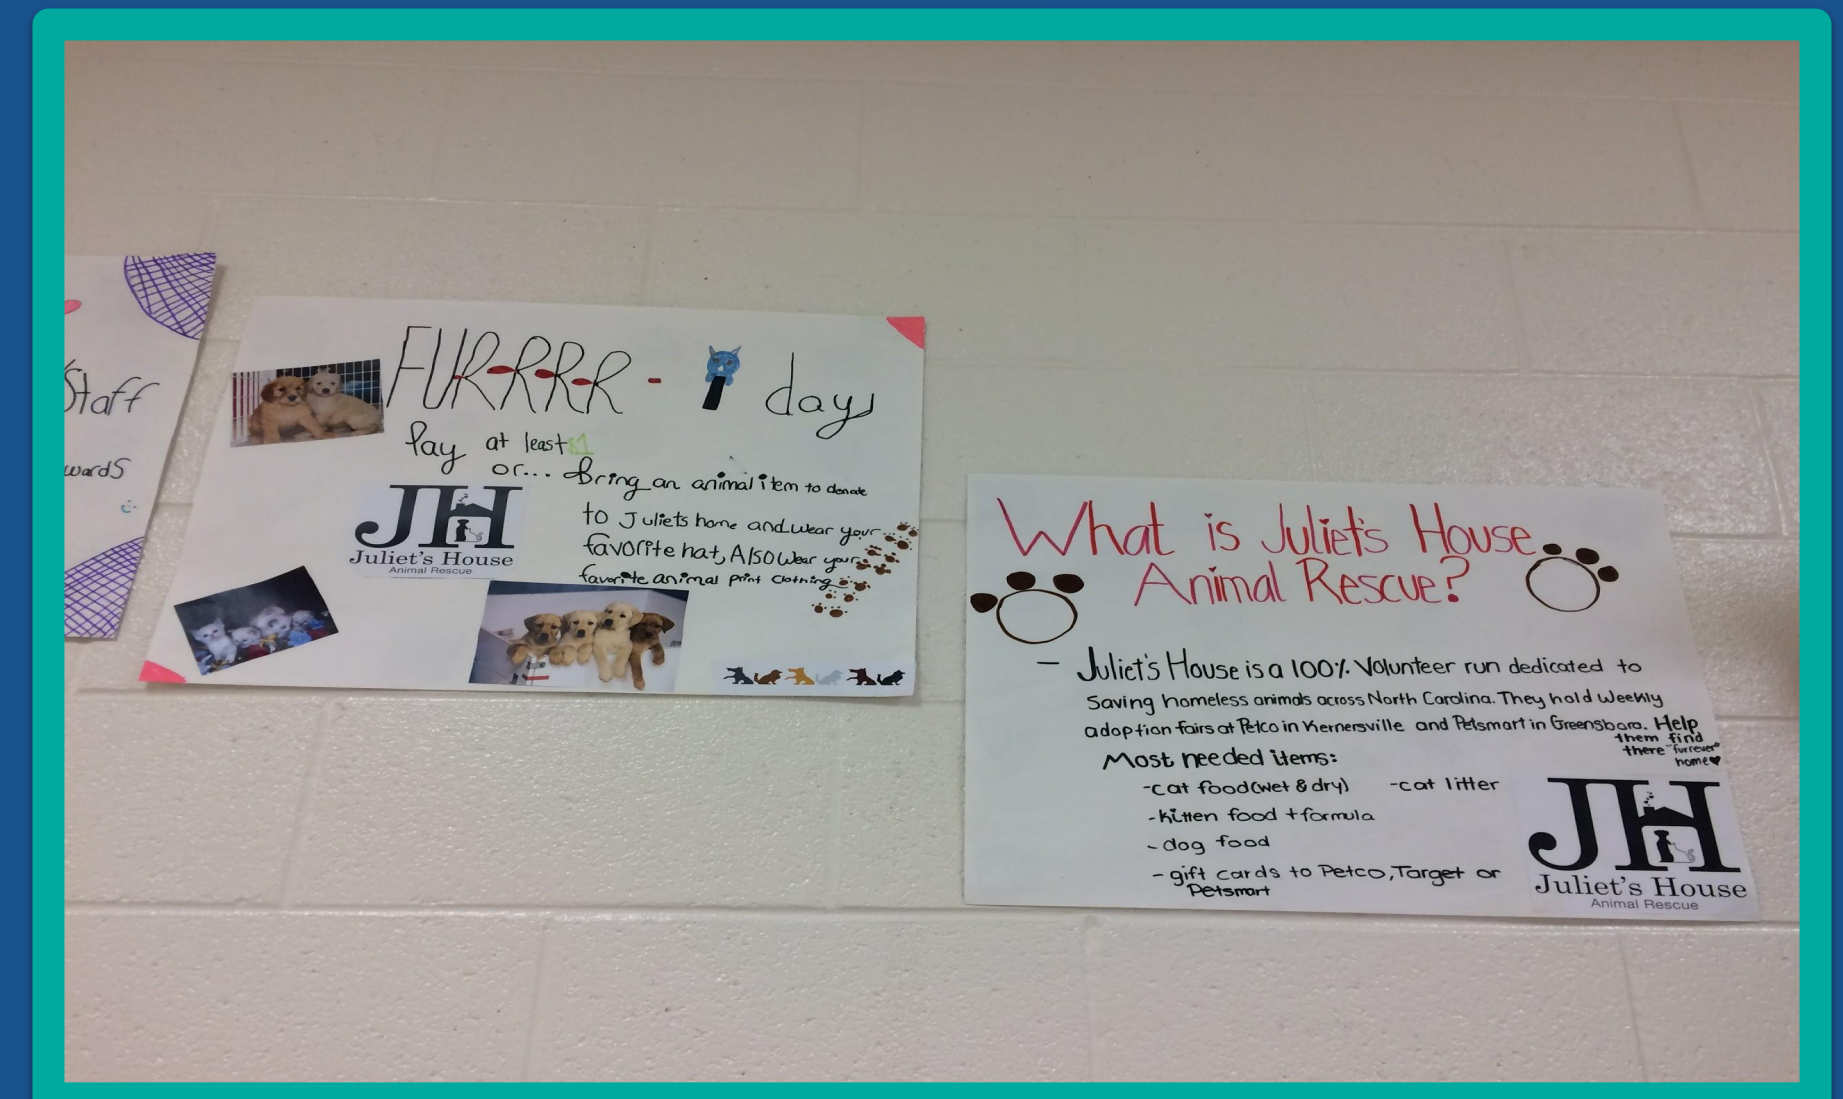 Staff
wards
FUR-R-R-R - i days
Pay at least $1
or... Bring an animal item to donate
to Juliet's home and wear your
favorite hat, Also wear your
favorite animal print clothing
JH
Juliet's House
Animal Rescue
What is Juliet's House
Animal Rescue?
- Juliet's House is a 100% volunteer run dedicated to
Saving homeless animals across North Carolina. They hold weekly
adoption fairs at Petco in Kernersville and Petsmart in Greensboro. Help
them find
there "furrever"
home♥
Most needed items:
-cat food (wet & dry) -cat litter
-kitten food + formula
-dog food
- gift cards to Petco, Target or
Petsmart
JH
Juliet's House
Animal Rescue